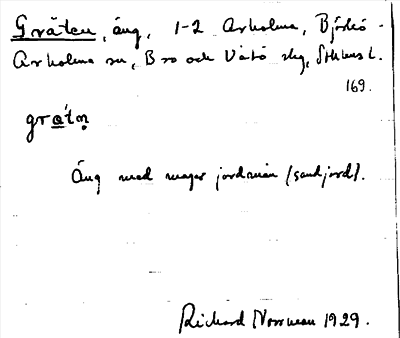 Gråten, äng, 1-2 Arholma, Björkö-
Arholma sn, Bro och Vätö slg, Sthlms l.
169.
gra̲tn̥
Äng med mager jordmån (sandjord).
Richard Norrman 1929.